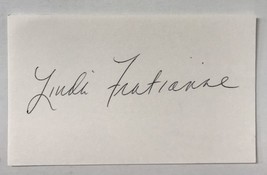 Linda Fratianne